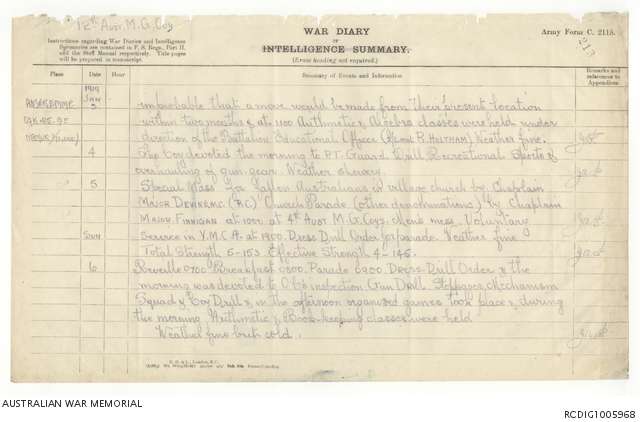 12th Aust. M.G. Coy
WAR DIARY
OR
INTELLIGENCE SUMMARY.
(Erase heading not required.)
Army Form C. 2118.
213
Instructions regarding War Diaries and Intelligence
Summaries are contained in F. S. Regs., Part II.
and the Staff Manual respectively. Title pages
will be prepared in manuscript.
Place Date Hour Summary of Events and Information Remarks and references to Appendices
1919
JAN
3 improbable that a move would be made from their present location
within two months & at 1100 Arithmetic & Algebra classes were held under
direction of the Battalion Educational Officer (Lieut P. HOLTHAM) Weather fine.
4 The Coy devoted the morning to P.T. Guard Drill Recreational Sports &
overhauling of gun gear. Weather showery.
5 Special Mass for fallen Australians in village church by Chaplain
MAJOR DEVINE M.C. (R.C.) Church Parade (other denominations) by Chaplain
MAJOR FINNIGAN at 1000 at 4th AUST M.G. Coys. men's mess. Voluntary
Sun Service in Y.M.C.A. at 1900. Dress Drill Order for parade. Weather fine
Total Strength 5-153 Effective Strength 4-145.
6 Reveille 0700 Breakfast 0800. Parade 0900 Dress Drill Order & the
morning was devoted to O.C's inspection Gun Drill Stoppages, Mechanism
Squad & Coy Drill & in the afternoon organised games took place & during
the morning Arithmetic & Book-keeping classes were held
Weather fine but cold.
AUSTRALIAN WAR MEMORIAL
RCDIG1005968